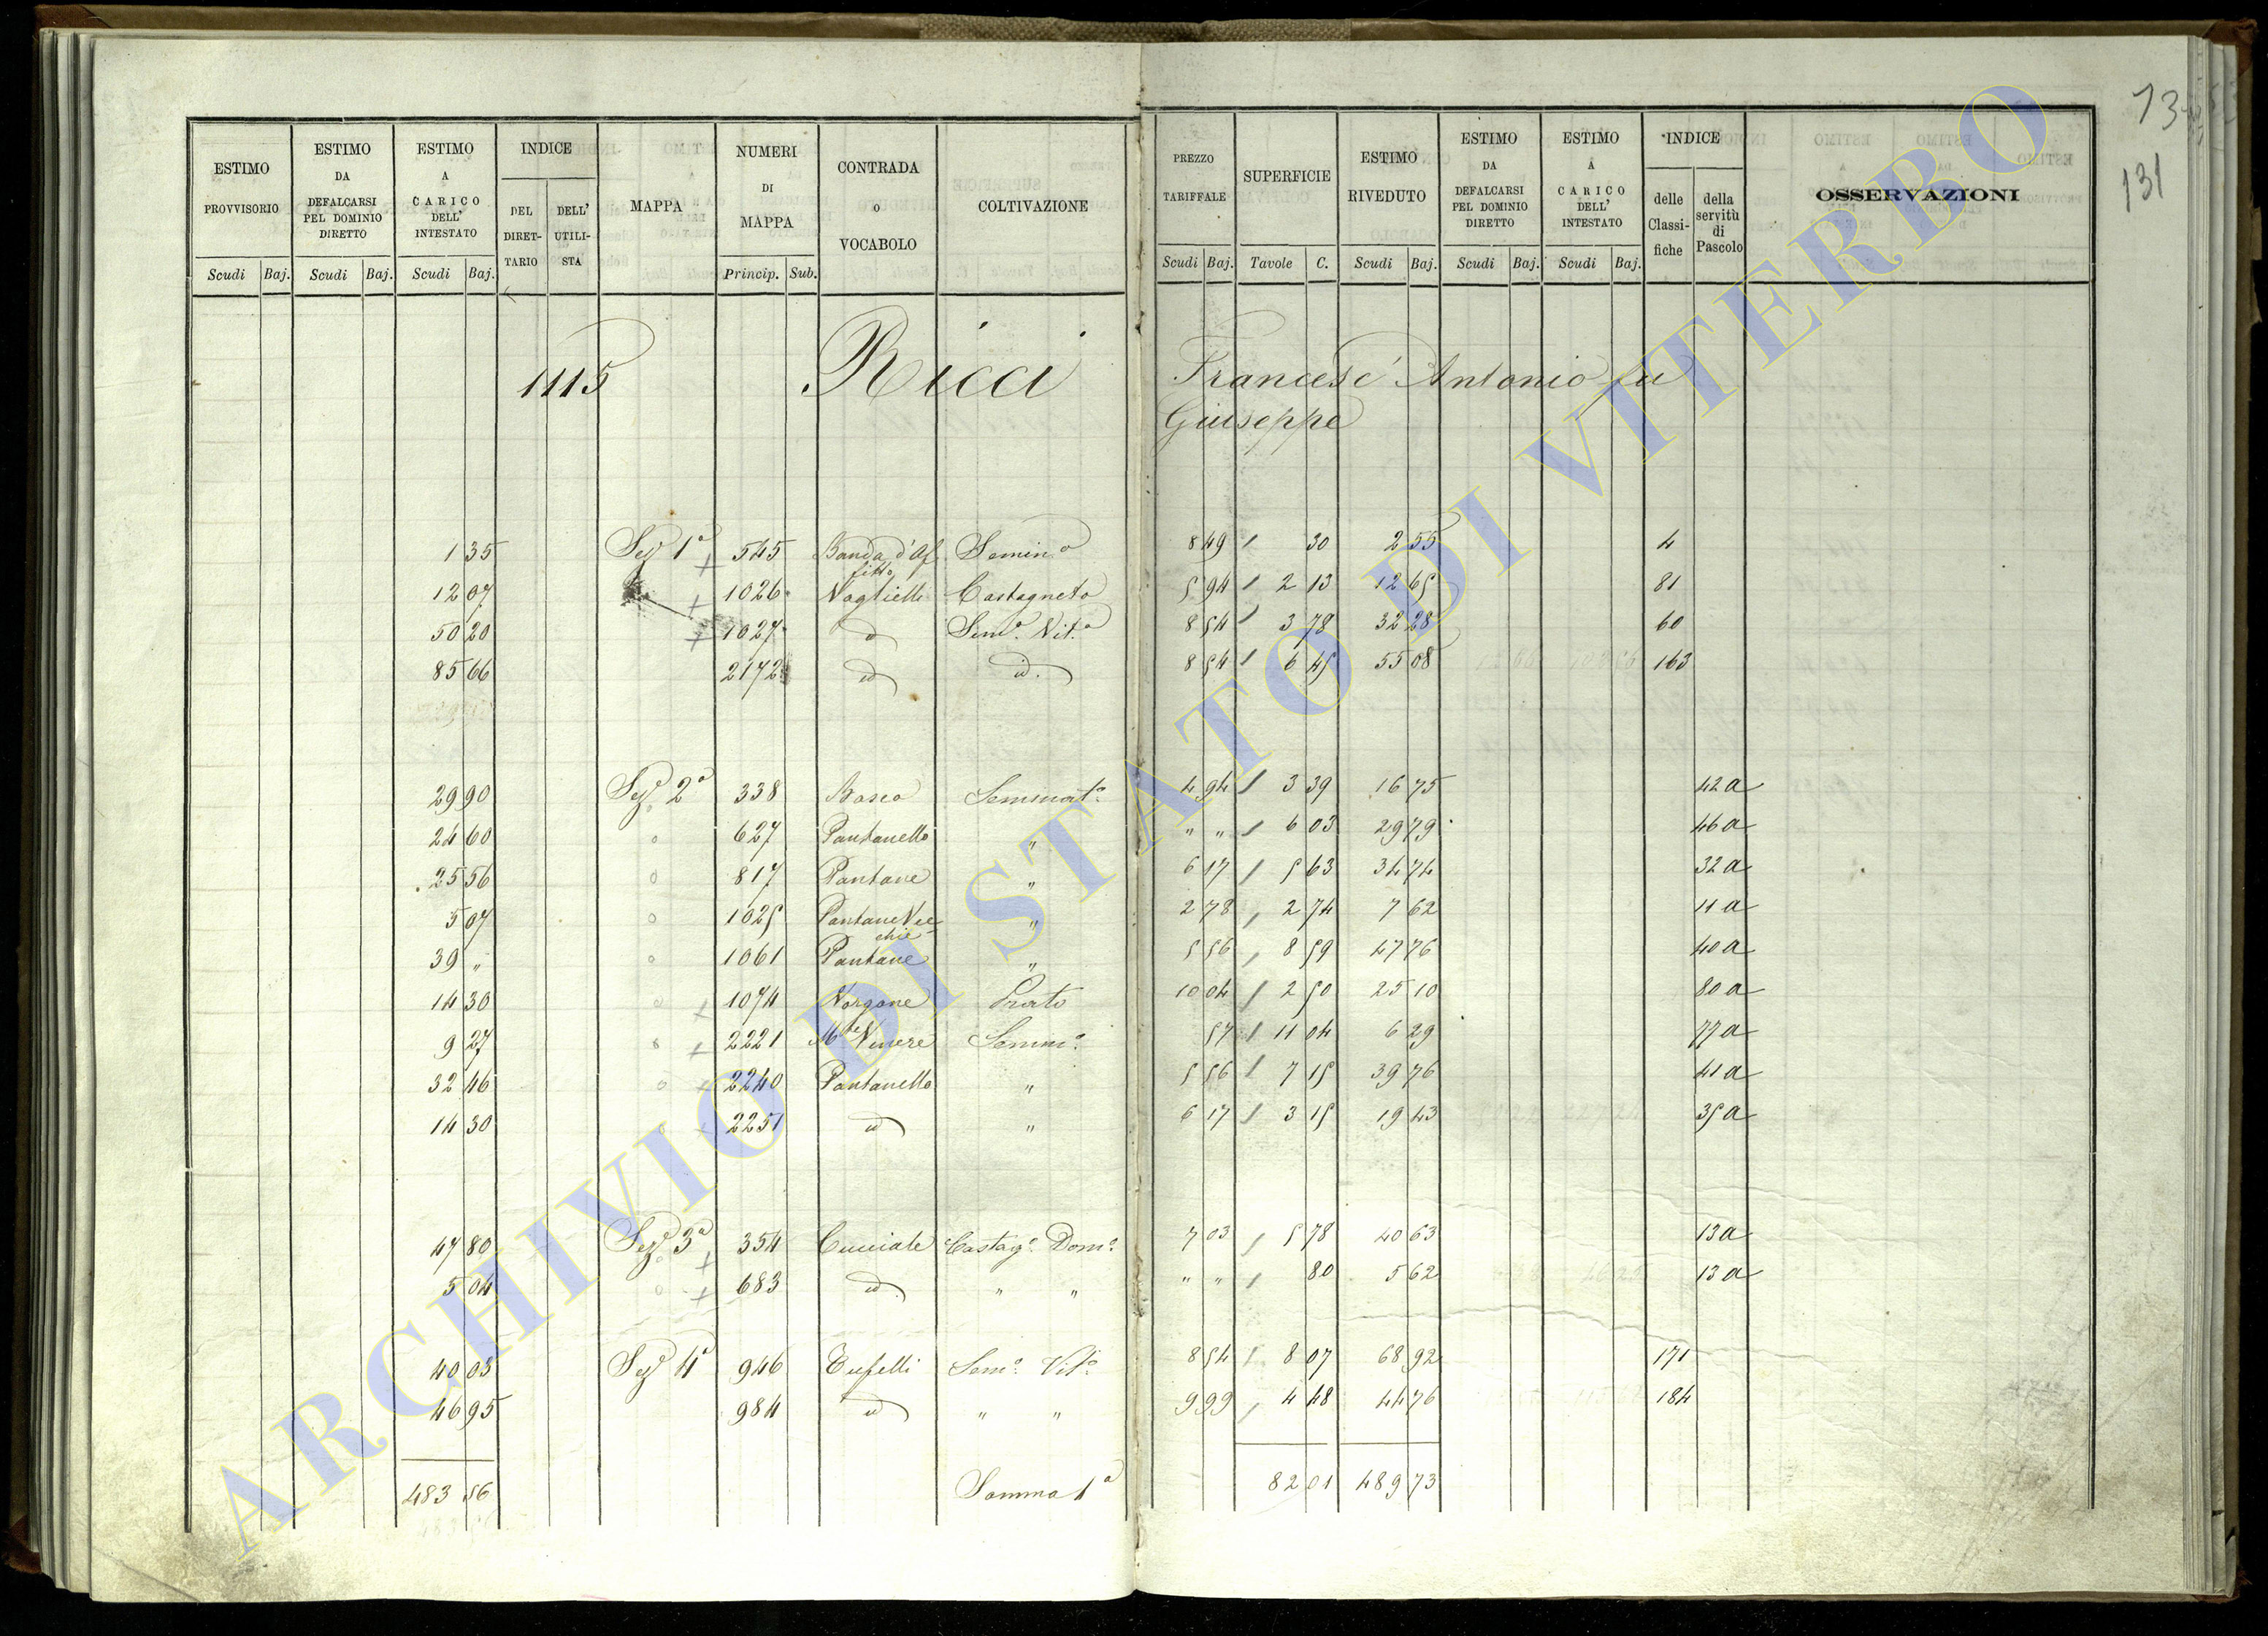 73
131
ESTIMO PROVVISORIO | ESTIMO DA DEFALCARSI PEL DOMINIO DIRETTO | ESTIMO A CARICO DELL' INTESTATO | INDICE | MAPPA | NUMERI DI MAPPA | CONTRADA o VOCABOLO | COLTIVAZIONE | PREZZO TARIFFALE | SUPERFICIE | ESTIMO RIVEDUTO | ESTIMO DA DEFALCARSI PEL DOMINIO DIRETTO | ESTIMO A CARICO DELL' INTESTATO | INDICE | OSSERVAZIONI
DEL DIRETTARIO | DELL' UTILISTA | delle Classifiche | della servitù di Pascolo
Scudi | Baj. | Scudi | Baj. | Scudi | Baj. | Princip. | Sub. | Scudi | Baj. | Tavole | C. | Scudi | Baj. | Scudi | Baj. | Scudi | Baj.
1115 Ricci Francesc' Antonio fu
Giuseppe
1 35 | Sez 1ª | 545 | Banda d'Affitto | Semin.o | 8 49 | 30 | 2 55 | 4
12 07 | 1026 | Naglielli | Castagneto | 5 94 | 2 13 | 12 65 | 81
50 20 | 1027 | id | Sem.o Vit.o | 8 54 | 3 78 | 32 28 | 60
85 66 | 2172 | id | id. | 8 54 | 6 45 | 55 08 | 163
29 90 | Sez 2ª | 338 | Bosco | Seminat.o | 4 94 | 3 39 | 16 75 | 42 a
24 60 | 627 | Pantanello | " | " " | 6 03 | 29 79 | 46 a
25 56 | 817 | Pantane | " | 6 17 | 5 63 | 34 74 | 32 a
5 07 | 1025 | Pantane Vecchie | " | 2 78 | 2 74 | 7 62 | 11 a
39 " | 1061 | Pantane | " | 5 56 | 8 59 | 47 76 | 40 a
14 30 | 1074 | Norgane | Prato | 10 04 | 2 50 | 25 10 | 80 a
9 27 | 2221 | M.te Venere | Semin.o | 57 | 11 04 | 6 29 | 77 a
32 46 | 2240 | Pantanello | " | 5 56 | 7 15 | 39 76 | 41 a
14 30 | 2251 | id | " | 6 17 | 3 15 | 19 43 | 35 a
47 80 | Sez 3ª | 354 | Cucciale | Castag.o Dom.o | 7 03 | 5 78 | 40 63 | 13 a
5 04 | 683 | id | " " | " " | 80 | 5 62 | 13 a
40 03 | Sez 4ª | 946 | Tufelli | Sem.o Vit.o | 8 54 | 8 07 | 68 92 | 171
46 95 | 984 | id | " " | 9 99 | 4 48 | 44 76 | 184
483 56 | Somma 1ª | 82 01 | 489 73
ARCHIVIO DI STATO DI VITERBO